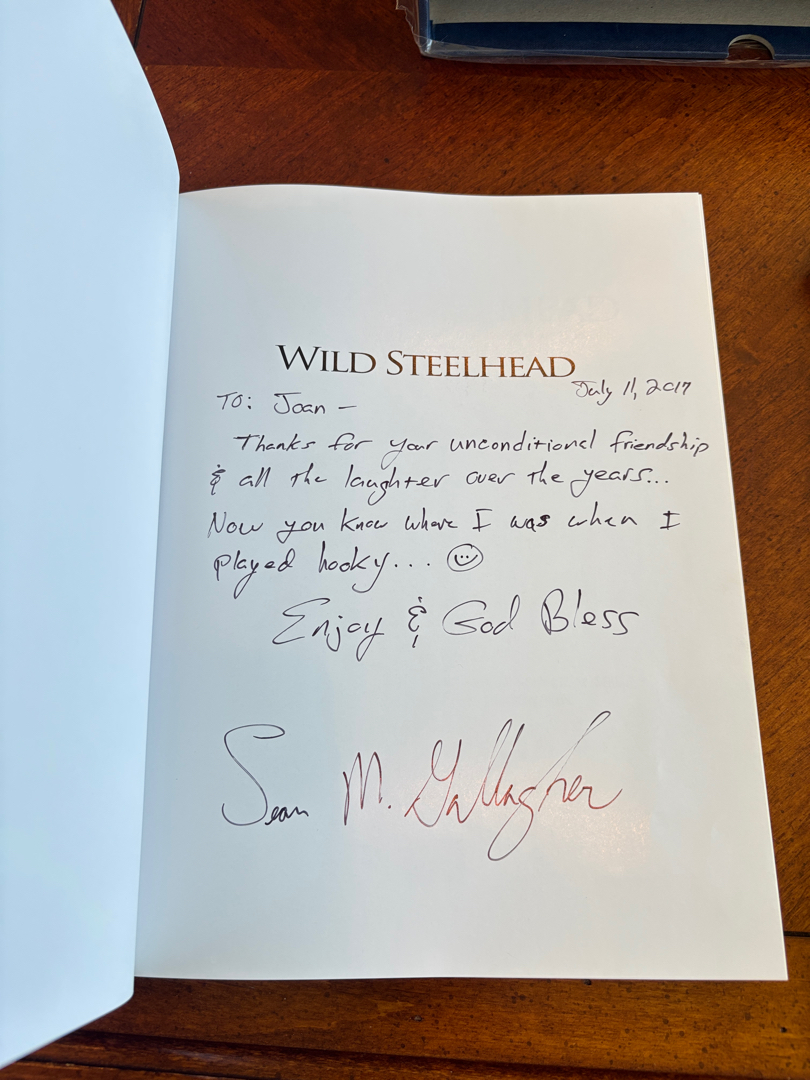 WILD STEELHEAD
July 11, 2017
TO: Joan –
Thanks for your unconditional friendship
& all the laughter over the years...
Now you know where I was when I
played hooky... ☺
Enjoy & God Bless
Sean M. Gallagher